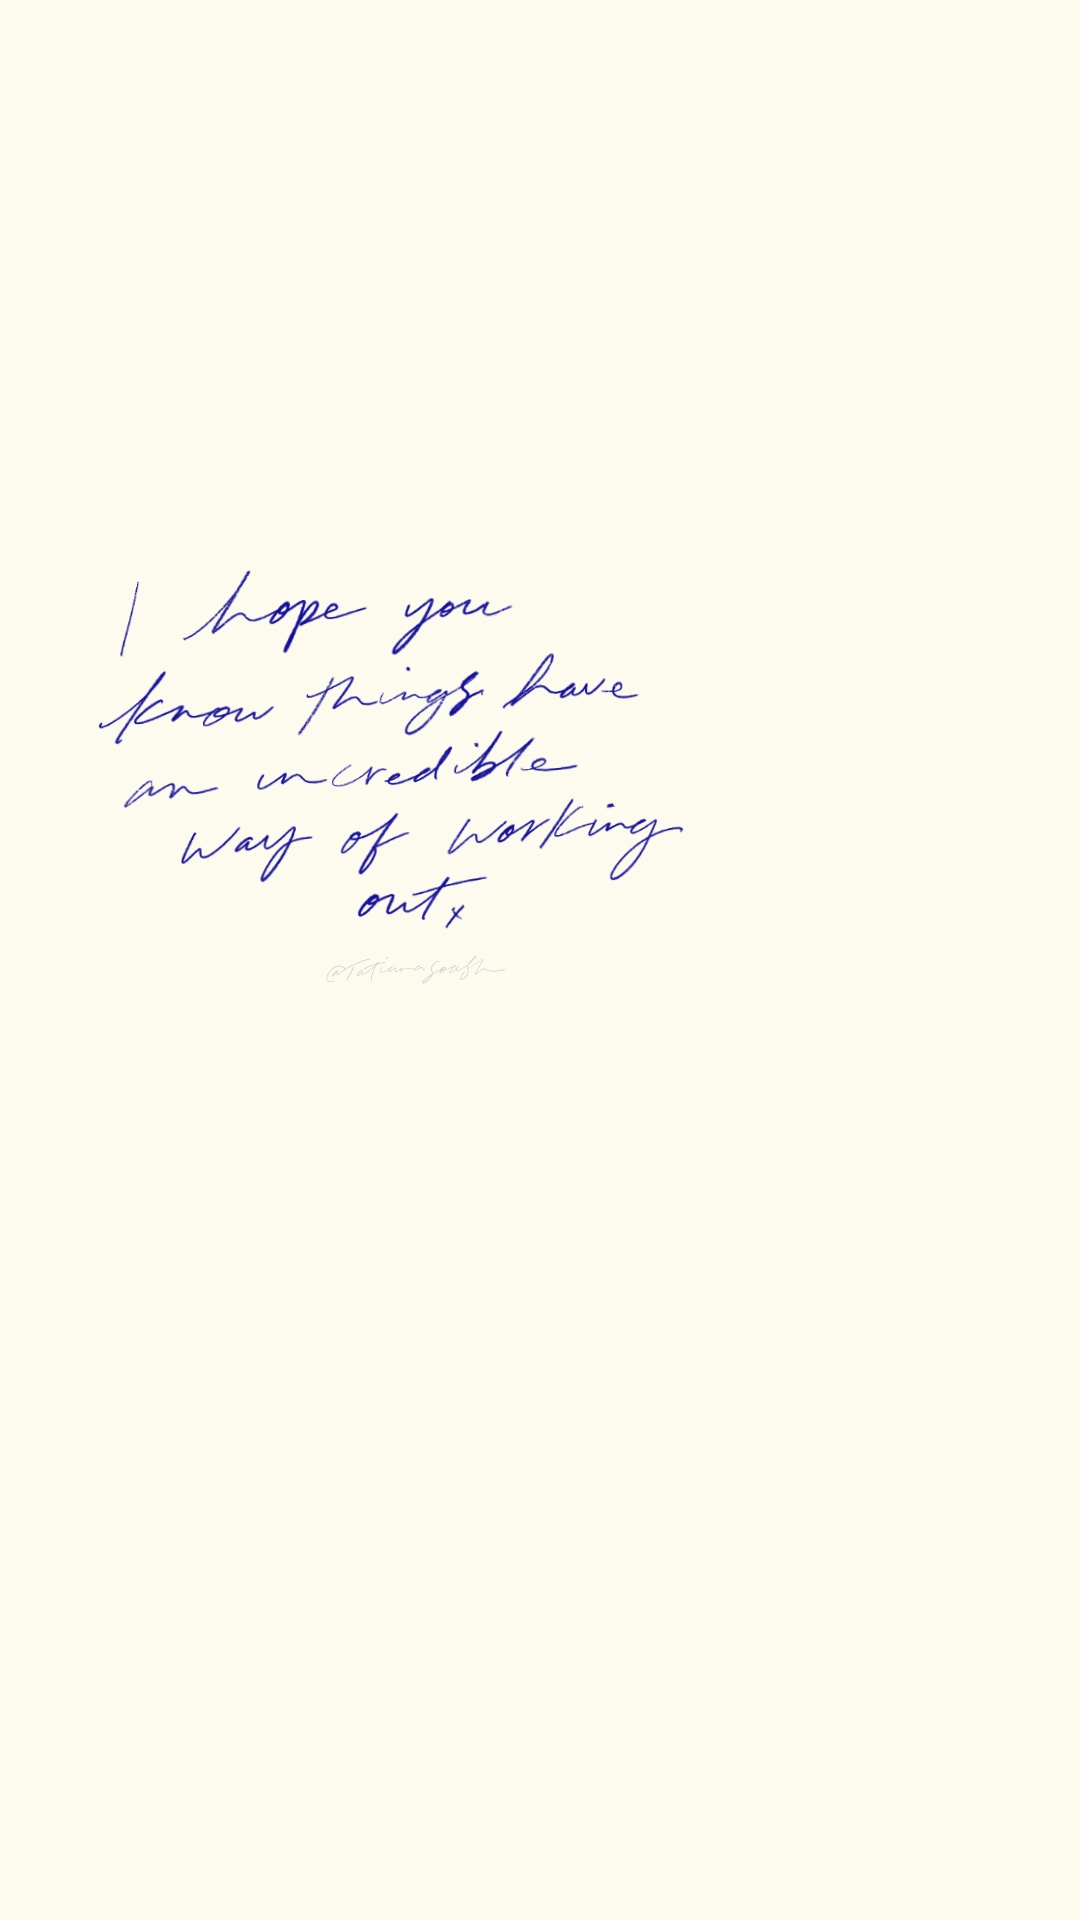 I hope you
know things have
an incredible
way of working
out x